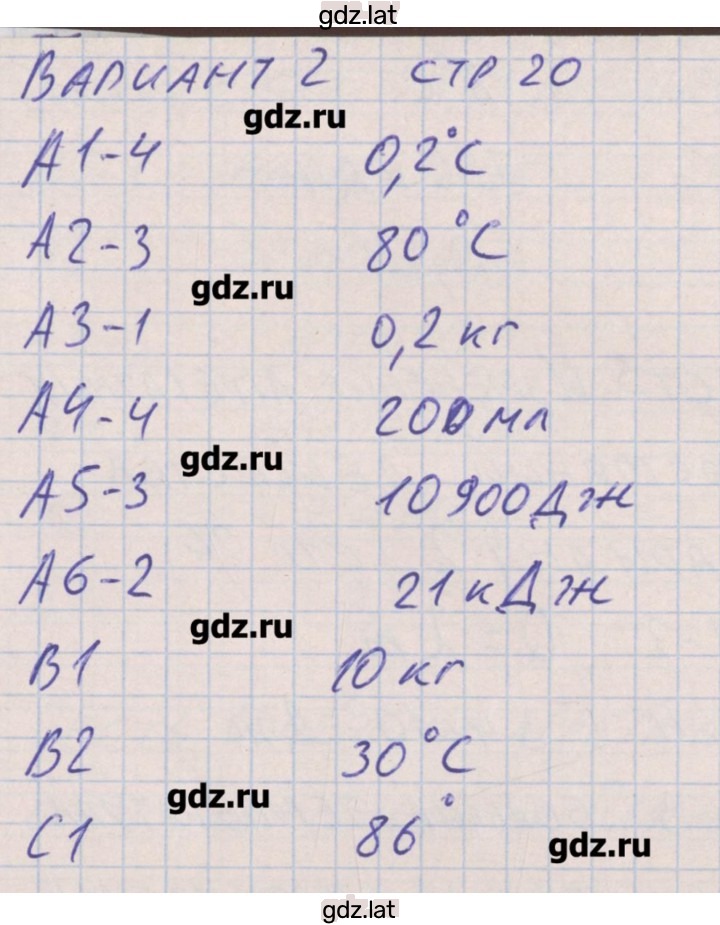 gdz.lat
ВАРИАНТ 2 СТР 20
gdz.ru
А1-4 0,2°С
А2-3 80°С
gdz.ru
А3-1 0,2 кг
А4-4 200 мл
gdz.ru
А5-3 10900 Дж
А6-2 21 кДж
gdz.ru
В1 10 кг
В2 30°С
gdz.ru
С1 86°
gdz.ru
gdz.lat